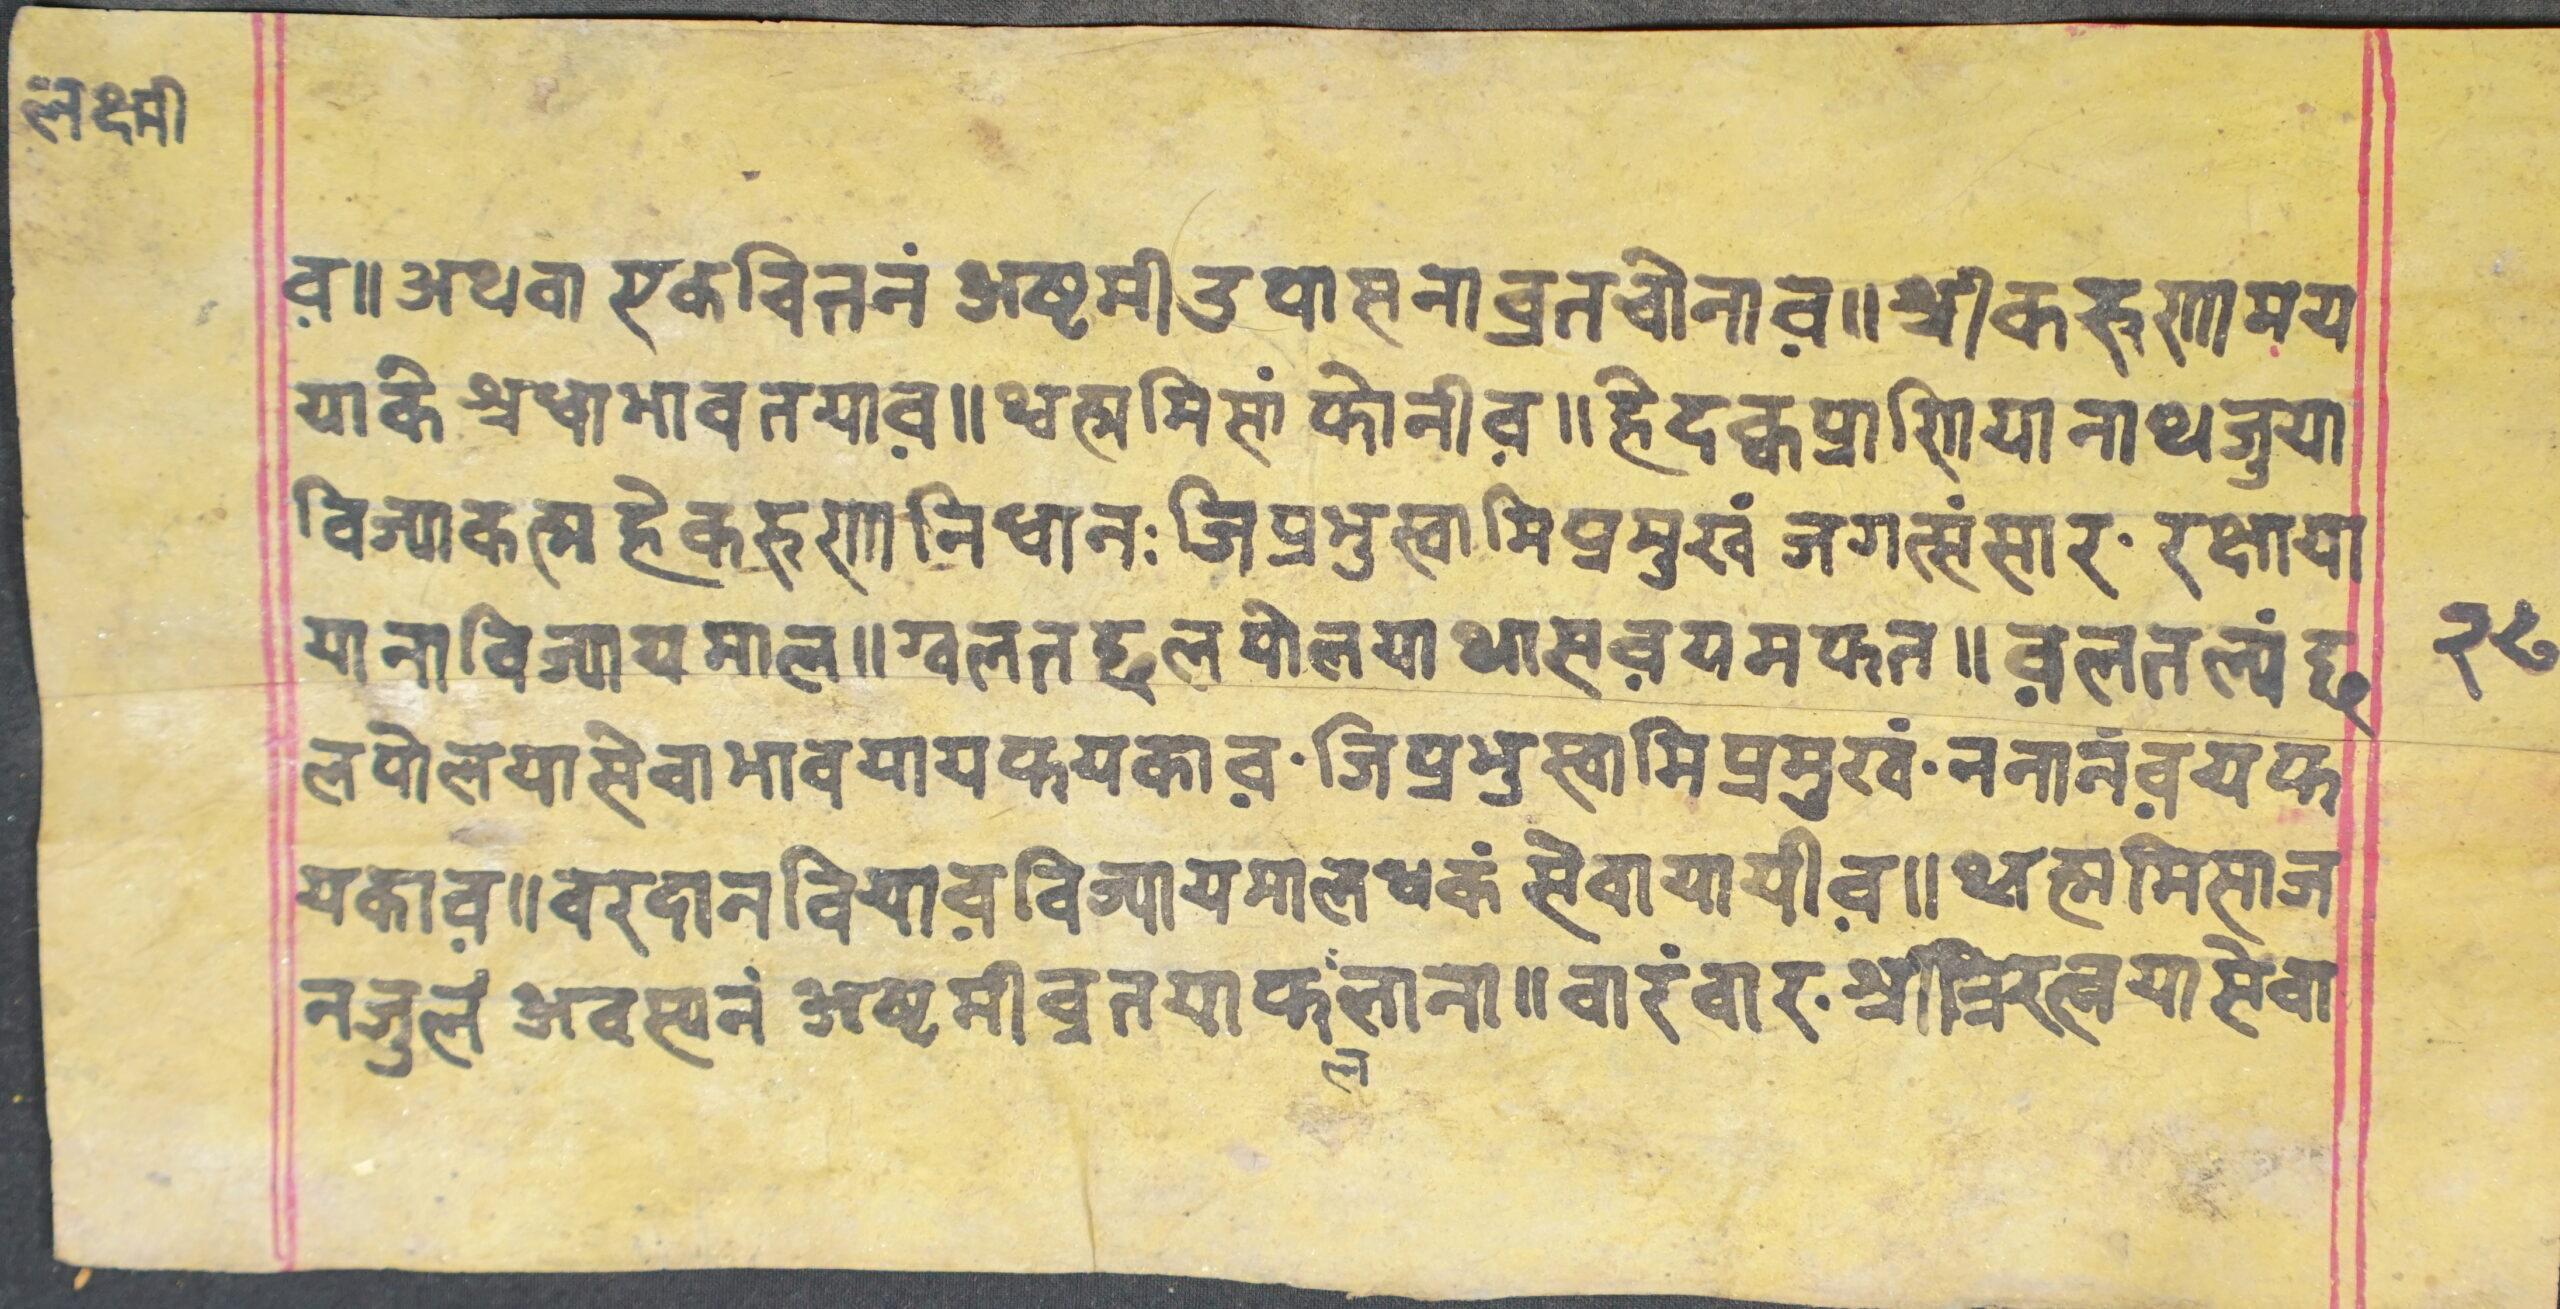 लक्ष्मी
व़॥ अथवा एकचित्तनं अष्टमीउपासनाव्रतचोनाव़॥ श्रीकरुणामय
याके श्रधाभावतयाव़॥ थ्वह्ममिसां फोनीव़॥ हेदक्वप्राणियानाथजुया
विज्याकह्म हेकरुणानिधानः जिप्रभुस्वामिप्रमुखं जगत्संसार· रक्षाया
यानाविज्यायमाल॥ ग्वलतछलपोलयाथासव़यमफत॥ व़लतल्यंछ
लपोलयासेवाभावयायफयकाव़· जिप्रभुस्वामिप्रमुखं· ननानंव़यफ
यकाव़॥ वरदानवियाव़विज्यायमालधकं सेवायायीव़॥ थ्वह्ममिसाज
नजुलं अवस्यनं अष्टमीव्रतयाफलंलाना॥ वारंवार· श्रीत्रिरत्नयासेवा
२९